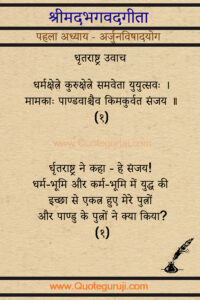 श्रीमदभगवदगीता
पहला अध्याय - अर्जुनविषादयोग
धृतराष्ट्र उवाच
धर्मक्षेत्रे कुरुक्षेत्रे समवेता युयुत्सवः ।
मामकाः पाण्डवाश्चैव किमकुर्वत संजय ॥
(१)
धृतराष्ट्र ने कहा - हे संजय!
धर्म-भूमि और कर्म-भूमि में युद्ध की
इच्छा से एकत्र हुए मेरे पुत्रों
और पाण्डु के पुत्रों ने क्या किया?
(१)
www.Quoteguruji.com